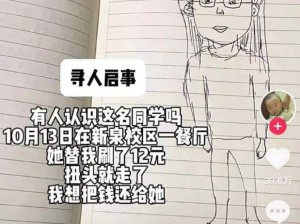 寻人启事
有人认识这名同学吗
10月13日在新泉校区一餐厅
她替我刷了12元
扭头就走了
我想把钱还给她